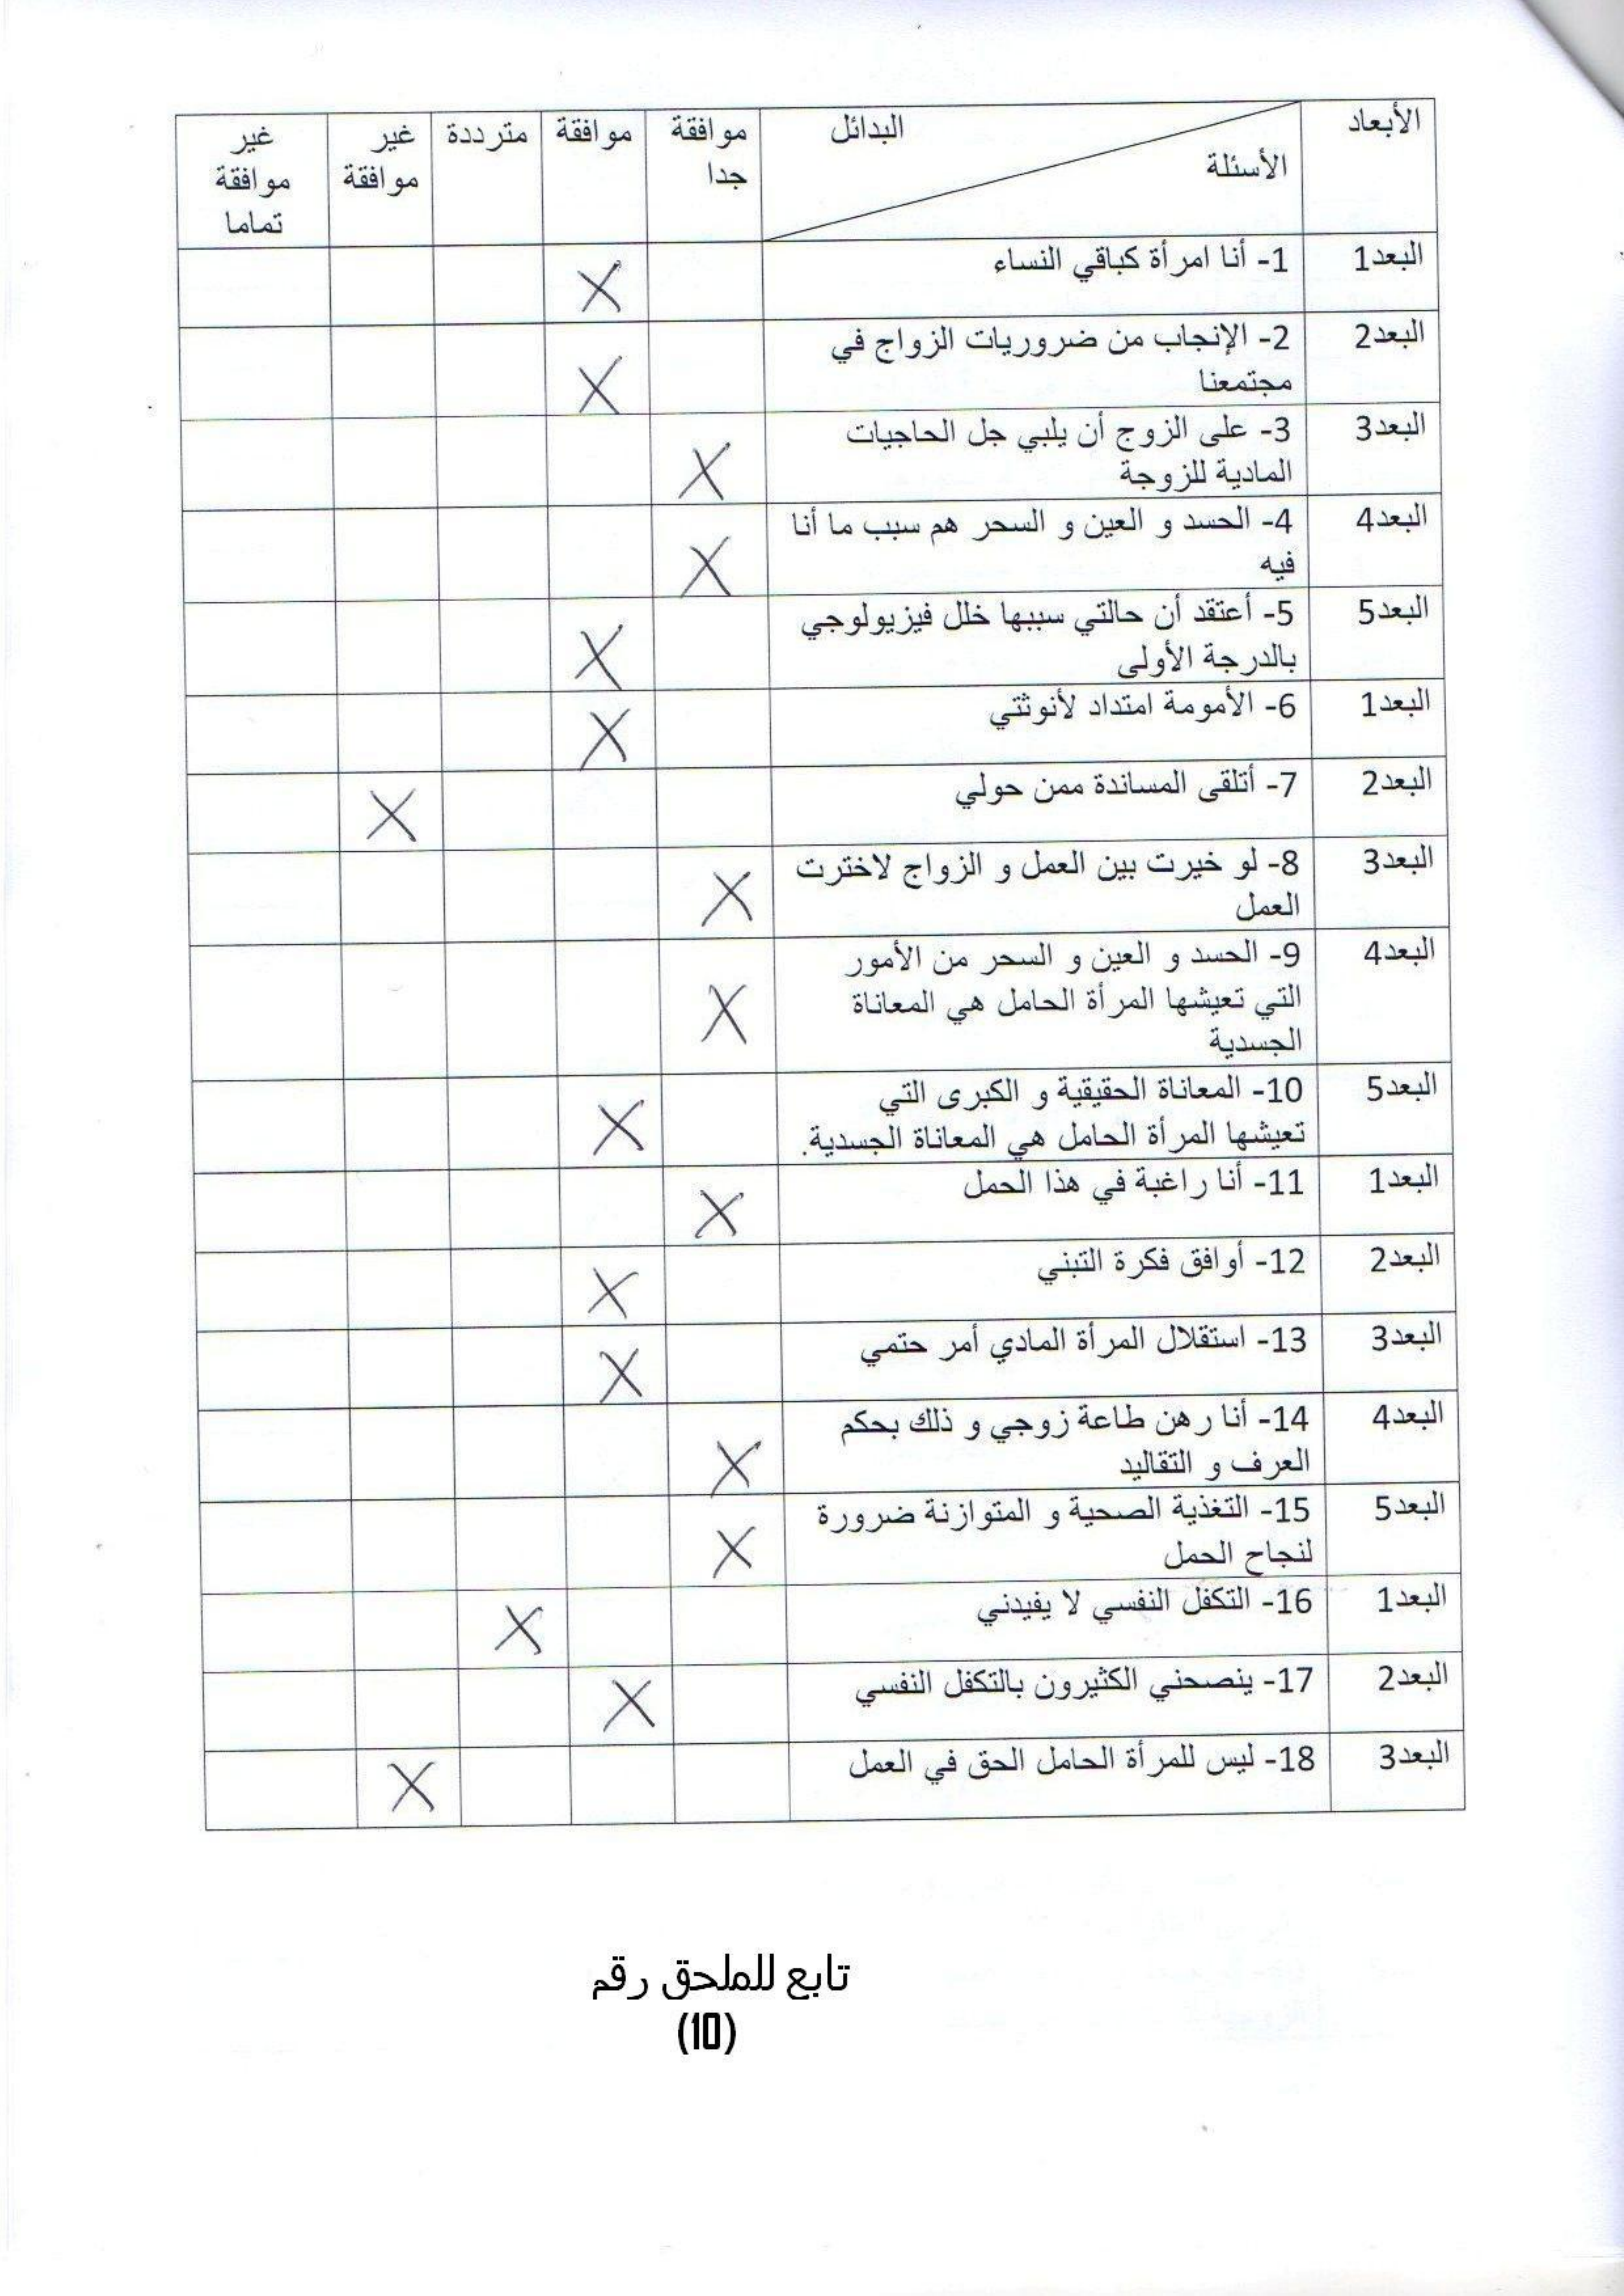 الأبعاد البدائل الأسئلة موافقة جدا موافقة مترددة غير موافقة غير موافقة تماما
البعد1 1- أنا امرأة كباقي النساء X
البعد2 2- الإنجاب من ضروريات الزواج في
مجتمعنا X
البعد3 3- على الزوج أن يلبي جل الحاجيات
المادية للزوجة X
البعد4 4- الحسد و العين و السحر هم سبب ما أنا
فيه X
البعد5 5- أعتقد أن حالتي سببها خلل فيزيولوجي
بالدرجة الأولى X
البعد1 6- الأمومة امتداد لأنوثتي X
البعد2 7- أتلقى المساندة ممن حولي X
البعد3 8- لو خيرت بين العمل و الزواج لاخترت
العمل X
البعد4 9- الحسد و العين و السحر من الأمور
التي تعيشها المرأة الحامل هي المعاناة
الجسدية X
البعد5 10- المعاناة الحقيقية و الكبرى التي
تعيشها المرأة الحامل هي المعاناة الجسدية. X
البعد1 11- أنا راغبة في هذا الحمل X
البعد2 12- أوافق فكرة التبني X
البعد3 13- استقلال المرأة المادي أمر حتمي X
البعد4 14- أنا رهن طاعة زوجي و ذلك بحكم
العرف و التقاليد X
البعد5 15- التغذية الصحية و المتوازنة ضرورة
لنجاح الحمل X
البعد1 16- التكفل النفسي لا يفيدني X
البعد2 17- ينصحني الكثيرون بالتكفل النفسي X
البعد3 18- ليس للمرأة الحامل الحق في العمل X
تابع للملحق رقم
(10)